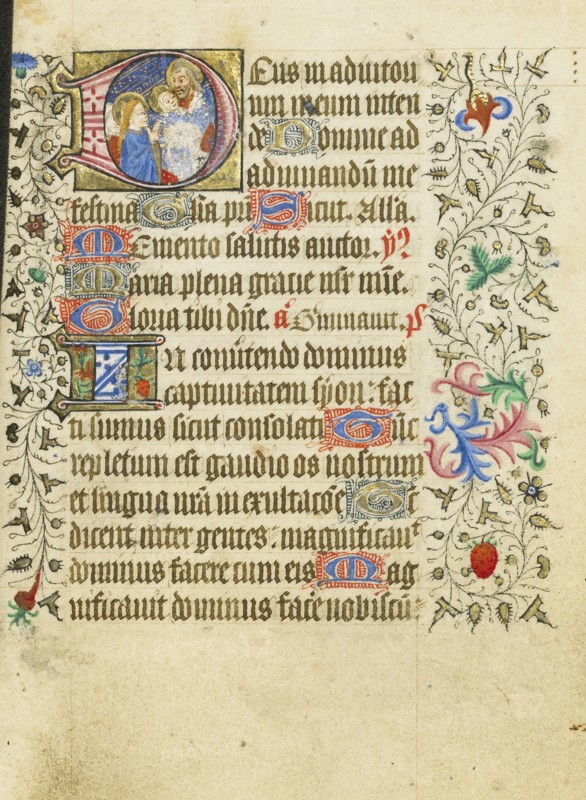 Deus in adiutoriu
um meum inten
de Domine ad
adiuuandū me
festina Glīa pri Sicut. Allā.
Memento salutis auctor. ℣
Maria plena gracie m̄r m̄ie.
Gloria tibi dn̄e. a Geminauit. ps
In conūtendo dominus
captiuitatem syon: fac
ti sumus sicut consolati Tūc
repletum est gaudio os nostrum
et lingua nr̄a in exultacōe Tc
dicent inter gentes: magnificauᵗ
dominus facere cum eis Mag
nificauit dominus fac̄e nobiscū: